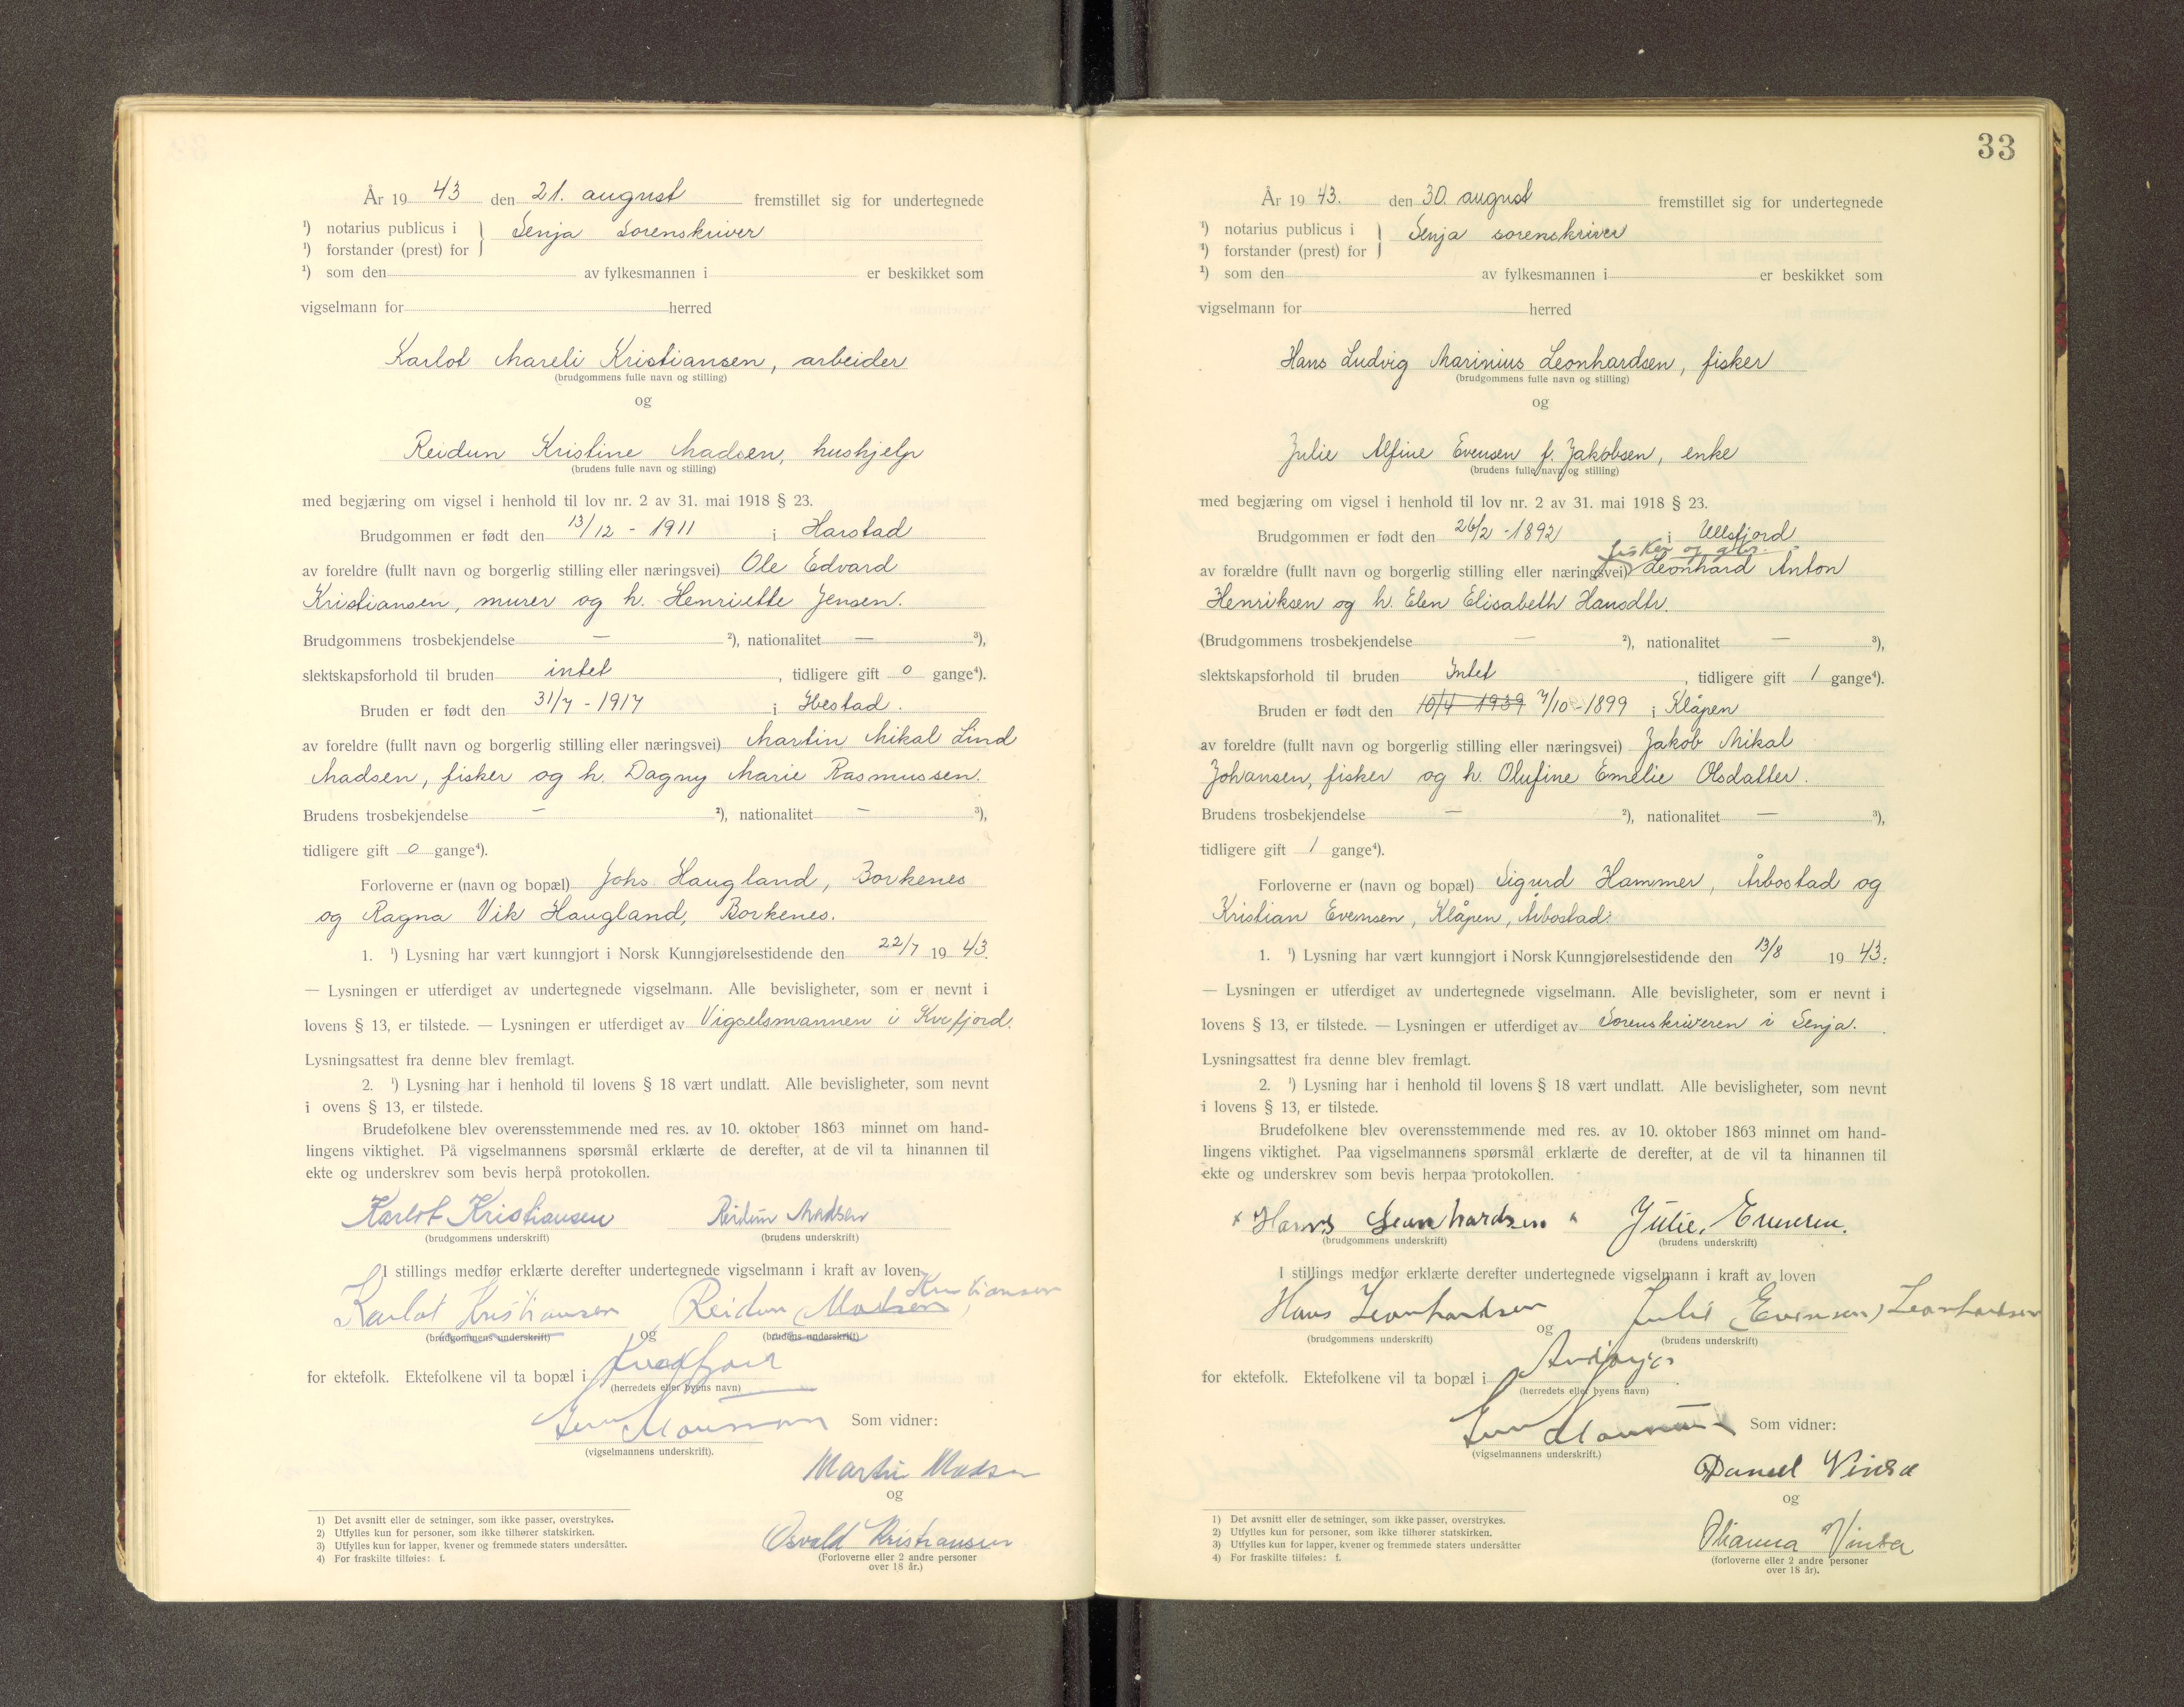 År 19 43 den 21. august fremstillet sig for undertegnede
¹) notarius publicus i } Senja Sorenskriver
¹) forstander (prest) for
¹) som den av fylkesmannen i er beskikket som
vigselmann for herred
Karlot Mareli Kristiansen, arbeider
(brudgommens fulle navn og stilling)
og
Reidun Kristine Madsen, hushjelp
(brudens fulle navn og stilling)
med begjæring om vigsel i henhold til lov nr. 2 av 31. mai 1918 § 23.
Brudgommen er født den 13/12 - 1911 i Harstad
av foreldre (fullt navn og borgerlig stilling eller næringsvei) Ole Edvard
Kristiansen, murer og h. Henriette Jensen.
Brudgommens trosbekjendelse — ²), nationalitet — ³),
slektskapsforhold til bruden intet, tidligere gift 0 gange⁴).
Bruden er født den 31/7 - 1917 i Ibestad.
av foreldre (fullt navn og borgerlig stilling eller næringsvei) Martin Mikal Lind
Madsen, fisker og h. Dagny Marie Rasmussen.
Brudens trosbekjendelse — ²), nationalitet — ³),
tidligere gift 0 gange⁴).
Forloverne er (navn og bopæl) Johs. Haugland, Borkenes
og Ragna Vik Haugland, Borkenes.
1. ¹) Lysning har vært kunngjort i Norsk Kunngjørelsestidende den 22/7 19 43.
— Lysningen er utferdiget av undertegnede vigselmann. Alle bevisligheter, som er nevnt i
lovens § 13, er tilstede. — Lysningen er utferdiget av Vigselsmannen i Kvefjord.
Lysningsattest fra denne blev fremlagt.
2. ¹) Lysning har i henhold til lovens § 18 vært undlatt. Alle bevisligheter, som nevnt
i ovens § 13, er tilstede.
Brudefolkene blev overensstemmende med res. av 10. oktober 1863 minnet om hand-
lingens viktighet. På vigselmannens spørsmål erklærte de derefter, at de vil ta hinannen til
ekte og underskrev som bevis herpå protokollen.
Karlot Kristiansen Reidun Madsen
(brudgommens underskrift) (brudens underskrift)
I stillings medfør erklærte derefter undertegnede vigselmann i kraft av loven
Karlot Kristiansen Reidun (Madsen) Kristiansen
(brudgommens underskrift) og (brudens underskrift)
for ektefolk. Ektefolkene vil ta bopæl i Kvæfjord
(herredets eller byens navn)
Som vidner:
(vigselmannens underskrift).
Martin Madsen
og
Osvald Kristiansen
(Forloverne eller 2 andre personer
over 18 år.)
1) Det avsnitt eller de setninger, som ikke passer, overstrykes.
2) Utfylles kun for personer, som ikke tilhører statskirken.
3) Utfylles kun for lapper, kvener og fremmede staters undersåtter.
4) For fraskilte tilføies: f.
33
År 19 43. den 30. august fremstillet sig for undertegnede
¹) notarius publicus i } Senja sorenskriver
¹) forstander (prest) for
¹) som den av fylkesmannen i er beskikket som
vigselmann for herred
Hans Ludvig Marinius Leonhardsen, fisker
(brudgommens fulle navn og stilling)
og
Julie Alfine Evensen f. Jakobsen, enke
(brudens fulle navn og stilling)
med begjæring om vigsel i henhold til lov nr. 2 av 31. mai 1918 § 23.
Brudgommen er født den 26/2 - 1892 i Ullsfjord
fisker og gbr.
av forældre (fullt navn og borgerlig stilling eller næringsvei) Leonhard Anton
Henriksen og h. Elen Elisabeth Hansdtr.
(Brudgommens trosbekjendelse — ²), nationalitet — ³),
slektskapsforhold til bruden Intet, tidligere gift 1 gange⁴).
Bruden er født den 10/4 1939 7/10 - 1899 i Klåpen
av foreldre (fullt navn og borgerlig stilling eller næringsvei) Jakob Mikal
Johansen, fisker og h. Olufine Emelie Olsdatter.
Brudens trosbekjendelse — ²), nationalitet — ³),
tidligere gift 1 gange⁴).
Forloverne er (navn og bopæl) Sigurd Hammer, Årbostad og
Kristian Evensen, Klåpen, Årbostad.
1. ¹) Lysning har vært kunngjort i Norsk Kunngjørelsestidende den 13/8 19 43.
— Lysningen er utferdiget av undertegnede vigselmann. Alle bevisligheter, som er nevnt i
lovens § 13, er tilstede. — Lysningen er utferdiget av Sorenskriveren i Senja.
Lysningsattest fra denne blev fremlagt.
2. ¹) Lysning har i henhold til lovens § 18 vært undlatt. Alle bevisligheter, som nevnt
i lovens § 13, er tilstede.
Brudefolkene blev overensstemmende med res. av 10. oktober 1863 minnet om hand-
lingens viktighet. Paa vigselmannens spørsmål erklærte de derefter, at de vil ta hinannen til
ekte og underskrev som bevis herpaa protokollen.
x Hans Leonhardsen x Julie, Evensen.
(brudgommens underskrift) (brudens underskrift)
I stillings medfør erklærte derefter undertegnede vigselmann i kraft av loven
Hans Leonhardsen Julie (Evensen) Leonhardsen
(brudgommens underskrift) og (brudens underskrift)
for ektefolk. Ektefolkene vil ta bopæl i Andørja
(herredets eller byens navn)
Som vidner:
(vigselmannens underskrift.)
Daniel Vinka
og
Vinka
(forloverne eller 2 andre personer
over 18 år).
1) Det avsnitt eller de setninger, som ikke passer, overstrykes.
2) Utfylles kun for personer, som ikke tilhører statskirken.
3) Utfylles kun for lapper, kvener og fremmede staters undersåtter
4) For fraskilte tilføies: f.